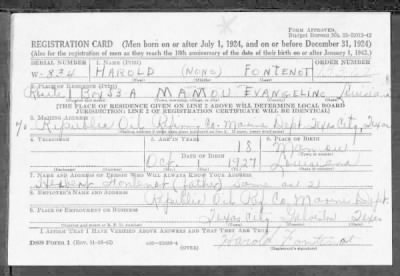 FORM APPROVED.
Budget Bureau No. 33-R013-42
REGISTRATION CARD (Men born on or after July 1, 1924, and on or before December 31, 1924)
(Also for the registration of men as they reach the 18th anniversary of the date of their birth on or after January 1, 1943.)
SERIAL NUMBER 1. NAME (Print) ORDER NUMBER
W- 834 HAROLD (NONE) FONTENOT
(First) (Middle) (Last)
2. PLACE OF RESIDENCE (Print)
Route 1 MAMOU EVANGELINE Louisiana
[THE PLACE OF RESIDENCE GIVEN ON LINE 2 ABOVE WILL DETERMINE LOCAL BOARD
JURISDICTION; LINE 2 OF REGISTRATION CERTIFICATE WILL BE IDENTICAL]
3. MAILING ADDRESS
% Republic Oil Rfng. Co. Marine Dept. Texas City, Texas
4. TELEPHONE 5. AGE IN YEARS 6. PLACE OF BIRTH
18 Mamou
DATE OF BIRTH
Oct 1 1927 Louisiana
7. NAME AND ADDRESS OF PERSON WHO WILL ALWAYS KNOW YOUR ADDRESS
Herbert Fontenot (father) same as 2
8. EMPLOYER'S NAME AND ADDRESS
Republic Oil Rf Co. Marine Dept.
9. PLACE OF EMPLOYMENT OR BUSINESS
Texas City Galveston Texas
I AFFIRM THAT I HAVE VERIFIED ABOVE ANSWERS AND THAT THEY ARE TRUE.
DSS Form 1 (Rev. 11-16-42) (OVER) Harold Fontenot
(Registrant's signature)